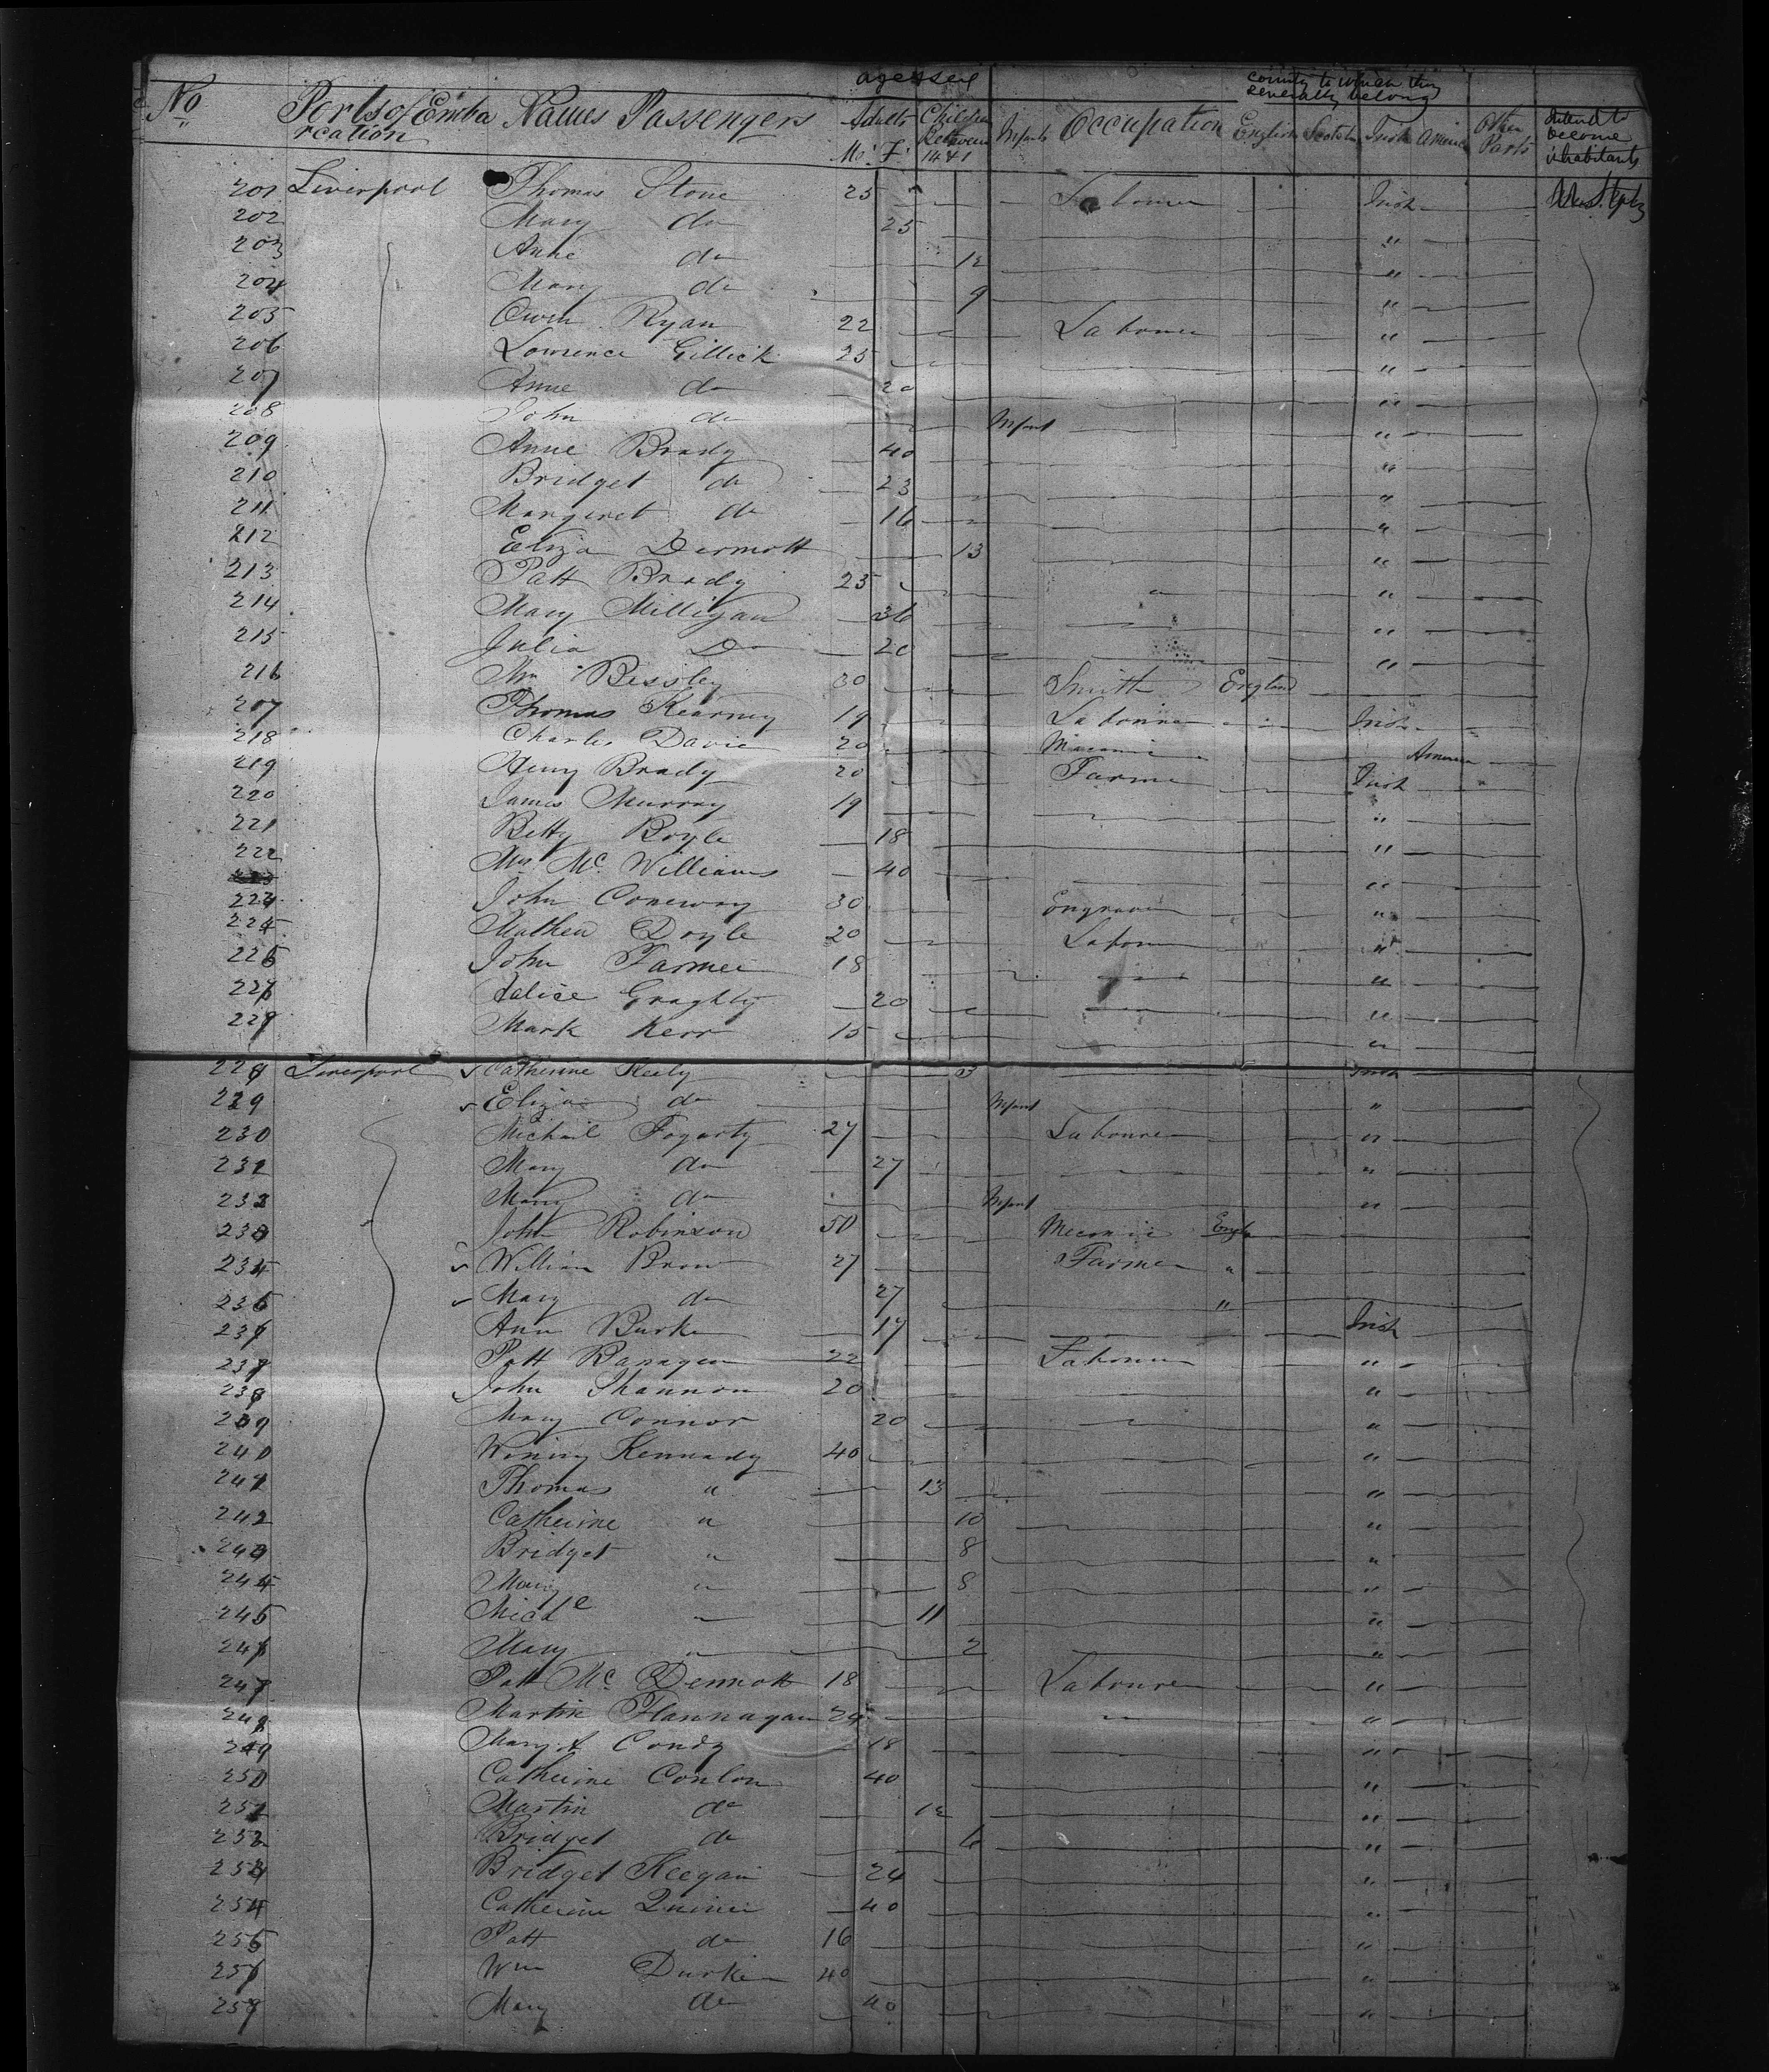 ages & sex
County to which they severally belong
No Ports of Emba rcation Names Passengers Adults M. F. Children Between 14 & 1 Infants Occupation English Scotch Irish America Other Parts Intend to become inhabitants
201 Liverpool Thomas Stone 25 Labourer Irish
202 Mary do 25 "
203 Anne do 12 "
204 Mary do 9 "
205 Owen Ryan 22 Labourer "
206 Lowrence Gillick 25 "
207 Anne do 20 "
208 John do Infant "
209 Anne Brady 40 "
210 Bridget do 23 "
211 Margaret do 16 "
212 Eliza Dermott 13 "
213 Patt Brady 25 " "
214 Mary Milligan 36 "
215 Julia Do 20 "
216 Wm Bessley 30 Smith England
207 Thomas Kearney 19 Labourer Irish
218 Charles Davie 20 America
219 Henry Brady 20 Farmer Irish
220 James Murray 19 "
221 Betty Boyle 18 "
222 Mrs Mc Williams 40 "
223 John Coneway 30 Engraver "
224 Mathew Doyle 20 Labourer "
225 John Farmer 18 "
Graghty 20 "
Mark Kerr 15 "
228 Liverpool Catherine Reily 3 Irish
229 Eliza do Infant "
230 Michail Fogarty 27 Labourer "
231 Mary do 27 "
232 Mary do Infant "
233 John Robinson 50 Mecanic Engl
234 William Brow 27 Farmer "
235 Mary do 27 "
236 Ann Burke 17 Irish
237 Patt Banagan 22 Labourer "
238 John Shannon 20 "
239 Mary Connor 20 "
240 Kennady 40 "
241 Thomas " 13 "
242 Catherine " 10 "
243 Bridget " 8 "
244 Mary " 8 "
245 Michl " 11 "
246 Mary " 2 "
247 Patt Mc Dermott 18 Labourer "
248 Martin Flannagan 24 " "
249 Mary A Condy 18 "
250 Catherine Conlon 40 "
251 Martin do 12 "
252 Bridget do 6 "
253 Bridget Keegan 24 "
254 Catherine 40 "
255 Patt do 16 "
256 Wm Durken 40 "
257 Mary do 40 "